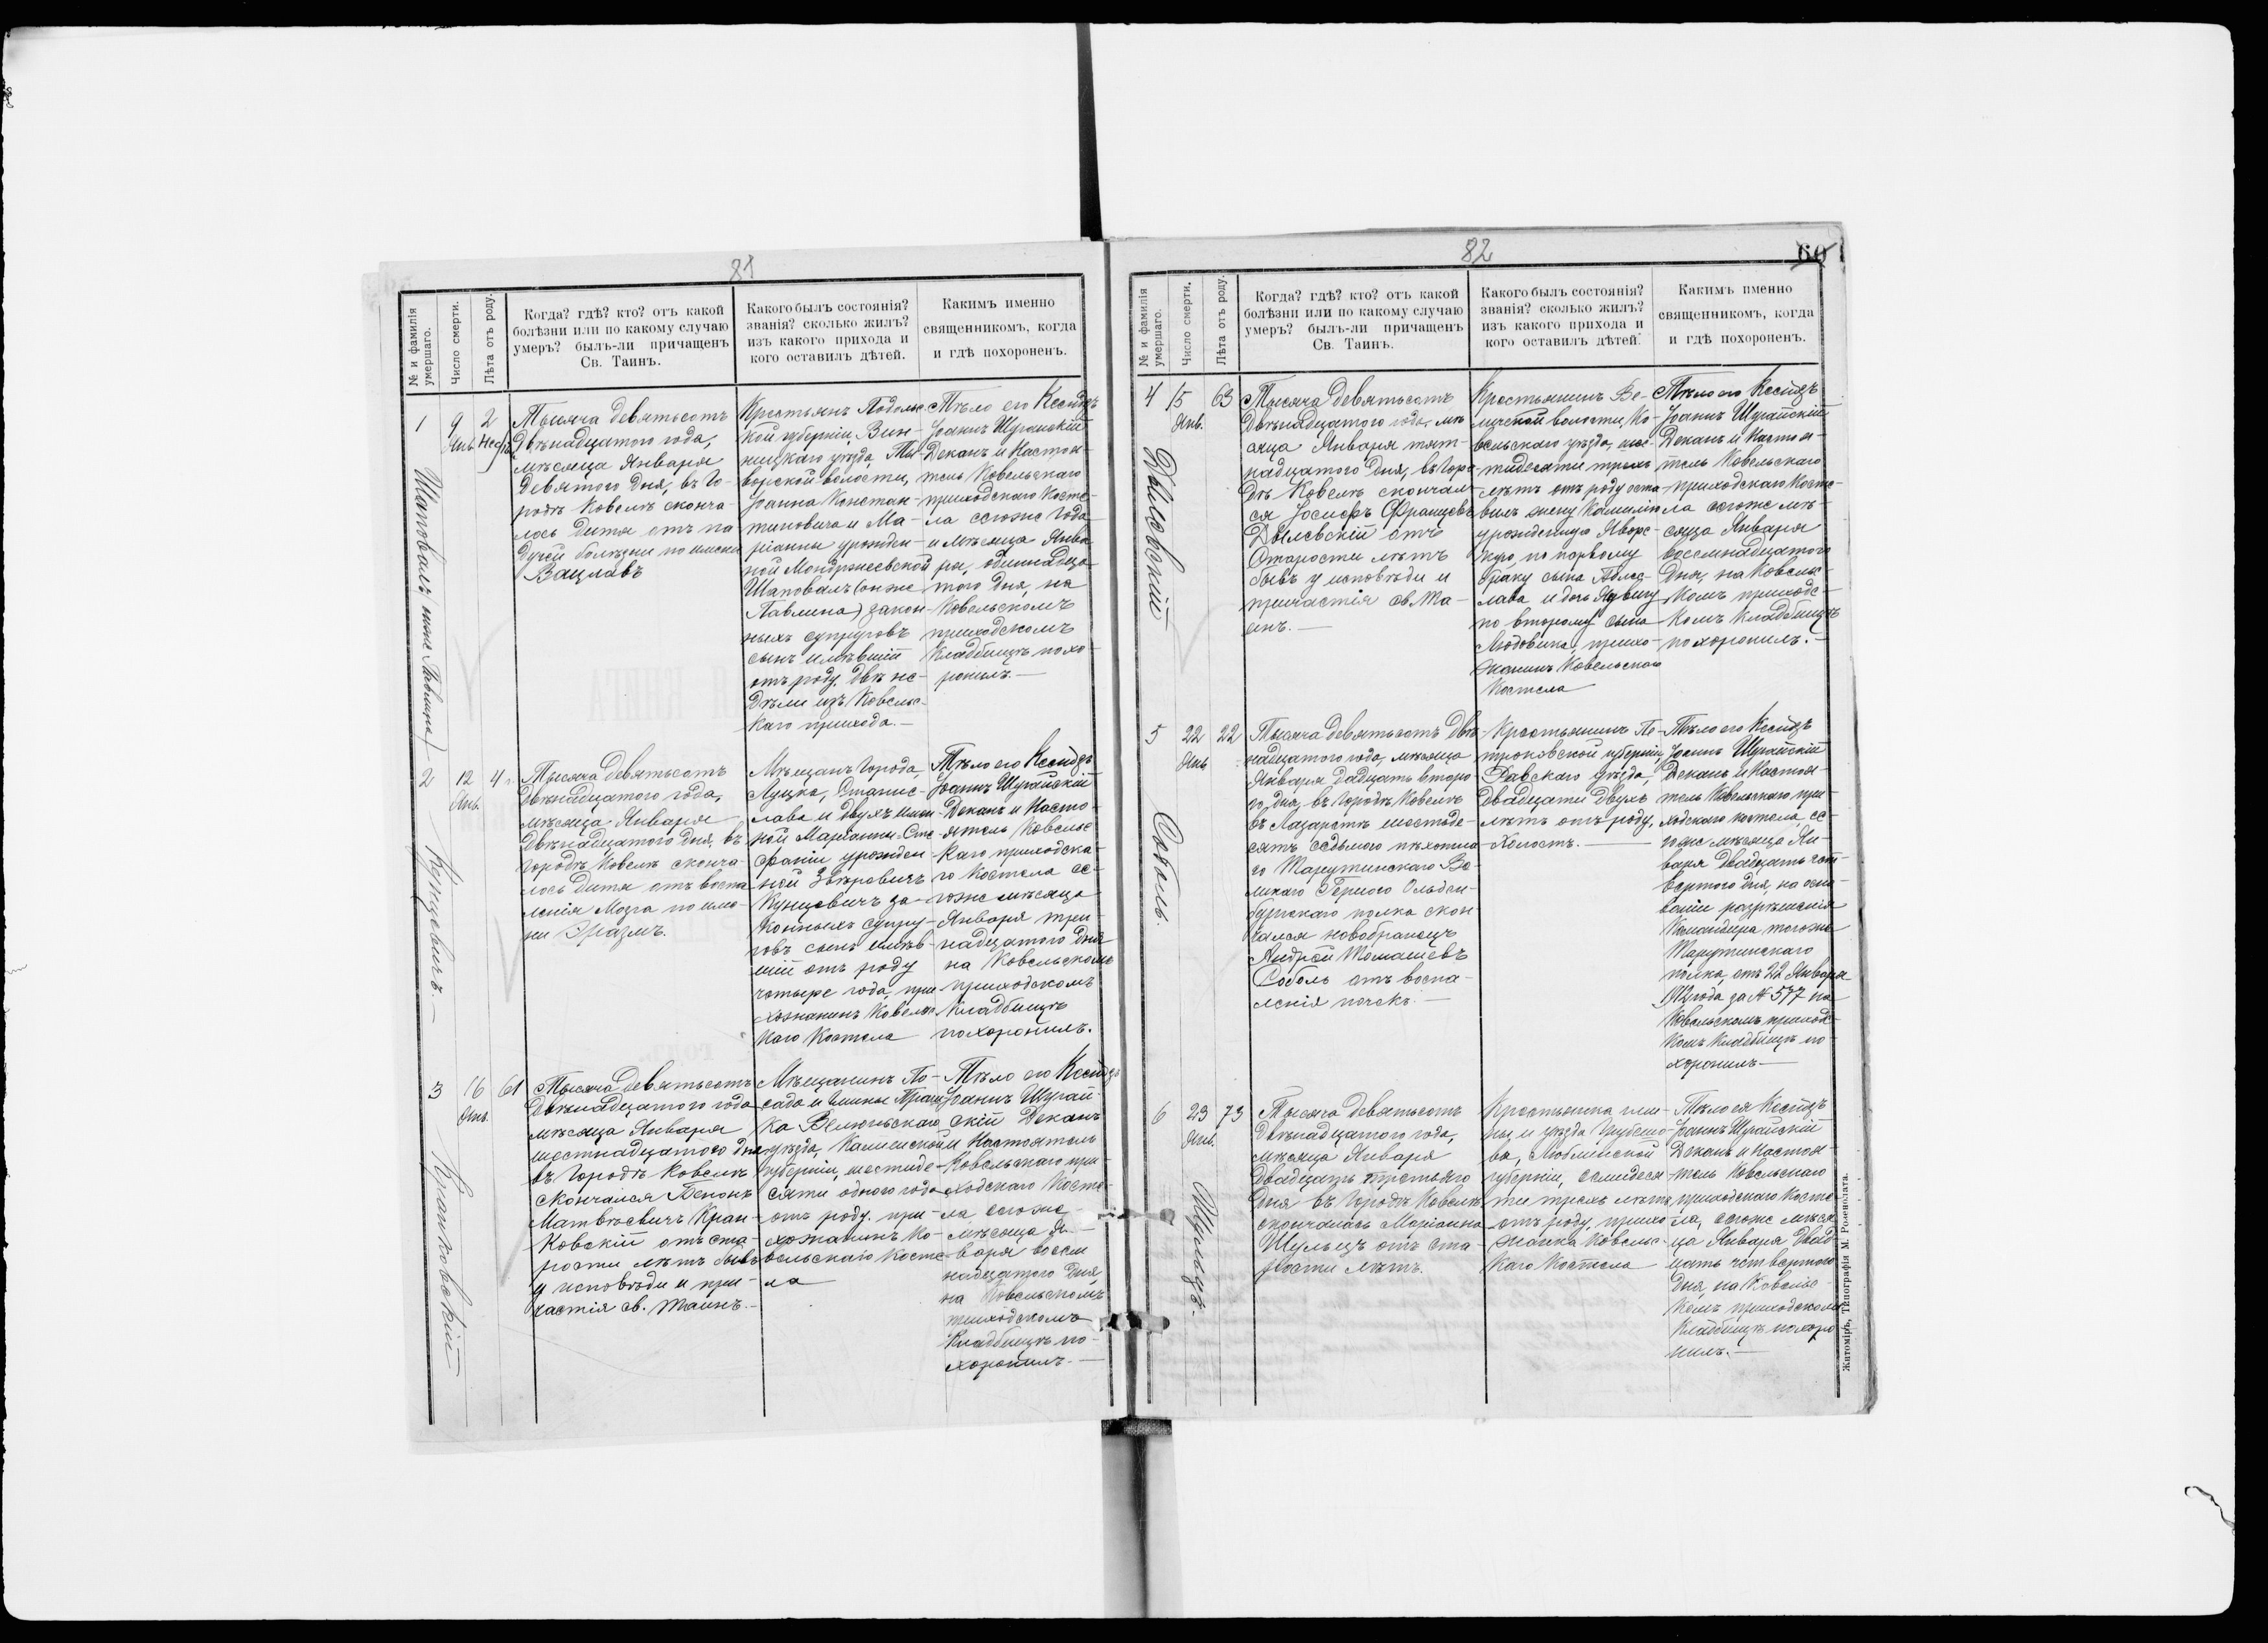 81
№ и фамилія умершаго.
Число смерти.
Лѣта отъ роду.
Когда? гдѣ? кто? отъ какой
болѣзни или по какому случаю
умеръ? былъ-ли причащенъ
Св. Таинъ.
Какого былъ состоянія?
званія? сколько жилъ?
изъ какого прихода и
кого оставилъ дѣтей.
Какимъ именно
священникомъ, когда
и гдѣ похороненъ.
1
Шаповалъ
9
Янв.
2
Тысяча девятьсотъ
Двѣнадцатого года,
мѣсяца Января
девятого дня, въ Го-
родѣ Ковелѣ сконча-
лось дитя отъ па
дучей болѣзни по имени
Вацлавъ
Крестьянъ Подольс-
кой губерніи, Вин-
ницкаго уѣзда,
ворской волости,
Іоанна Констан-
тиновича и Ма-
ріанны урожден-
ной
Шаповалъ (онже
Павлина) закон-
ныхъ супруговъ
сынъ имѣвшій
отъ роду двѣ не-
дѣли изъ Ковельс-
каго прихода.—
Тѣло его Ксендзъ
Іоаннъ Шурайскій
Деканъ и Настоя-
тель Ковельскаго
приходскаго Косте-
ла сегоже года
и мѣсяца Янва
ря, одиннадца-
того дня, на
Ковельскомъ
приходскомъ
Кладбищѣ похо-
ронилъ.—
2
Кунцевичъ.—
12
Янв.
4 г.
Тысяча девятьсотъ
двѣнадцатого года,
мѣсяца Января
двѣнадцатого дня, въ
городѣ Ковелѣ сконча-
лось дитя отъ воспа
ленія мозга по име-
ни Эразмъ.
Мѣщанъ Города,
Луцка, Станис-
лава и двухъ имен-
ной Маріанны-Сте
фаніи урожден-
ной Звѣровичъ
Кунцевичъ за-
конныхъ супру-
говъ сынъ имѣв-
шій отъ роду
четыре года, при
хожанинъ Ковельс-
каго Костела
Тѣло его Ксендзъ
Іоаннъ Шурайскій
Деканъ и Насто-
ятель Ковельс
каго приходска-
го Костела се-
гоже мѣсяца
Января три-
надцатого дня
на Ковельскомъ
приходскомъ
Кладбищѣ
похоронилъ.
3
Кранковскій
16
Янв.
61
Тысяча девятьсотъ
Двѣнадцатого года
мѣсяца Января
шестнадцатого дня
въ Городѣ Ковелѣ
скончался
Матвѣевичъ Кран-
ковскій отъ ста-
рости лѣтъ бывъ
у исповѣди и при-
частія св. Таинъ.—
Мѣщанинъ По-
сада и Гмины Праш
ка Велюньскаго
уѣзда, Калишской
губерніи, шестиде-
сяти одного года
отъ роду, при-
хожанинъ Ко-
вельскаго Косте-
ла
Тѣло его Ксендзъ
Іоаннъ Шурай-
скій Деканъ
и Настоятель
Ковельскаго при-
ходскаго Косте-
ла сегоже
мѣсяца Ян-
варя восем
надцатого дня
на Ковельскомъ
приходскомъ
Кладбищѣ по-
хоронилъ.—
82
60
№ и фамилія умершаго.
Число смерти.
Лѣта отъ роду.
Когда? гдѣ? кто? отъ какой
болѣзни или по какому случаю
умеръ? былъ-ли причащенъ
Св. Таинъ.
Какого былъ состоянія?
званія? сколько жилъ?
изъ какого прихода и
кого оставилъ дѣтей.
Какимъ именно
священникомъ, когда
и гдѣ похороненъ.
4
Дылевскій
15
Янв.
63
Тысяча девятьсотъ
Двѣнадцатого года, мѣ
сяца Января пят-
надцатого дня, въ Горо-
дѣ Ковелѣ скончал-
ся Іосифъ Францевъ
Дылевскій отъ
Старости лѣтъ
бывъ у исповѣди и
причастія св. Та-
инъ.—
Крестьянинъ Ве-
лицкой волости, Ко-
вельскаго уѣзда, шес-
тидесяти трехъ
лѣтъ отъ роду оста-
вилъ жену Камилію
урожденную Яворс-
кую, по первому
браку сына Болес-
лава и дочь Ядвигу
по второму сына
Людовика, прихо-
жанинъ Ковельскаго
Костела
Тѣло его Ксендзъ
Іоаннъ Шурайскій
Деканъ и Настоя-
тель Ковельскаго
приходскаго Косте-
ла сегоже мѣ-
сяца Января
восемнадцатого
дня, на Ковельс-
комъ приходс-
комъ Кладбищѣ
похоронилъ.—
5
Соболь.
22
Янв
22
Тысяча девятьсотъ двѣ
надцатого года, мѣсяца
Января дадцать второ-
го дня, въ Городѣ Ковелѣ
въ Лазаретѣ шестьде-
сятъ седьмого пѣхотна
го Тарутинскаго Ве-
ликаго Герцога Ольден-
бургскаго полка скон
чался новобранецъ
Андрей Томашевъ
Соболь отъ воспа-
ленія почекъ.—
Крестьянинъ Пе-
троковской губерніи,
Равскаго уѣзда,
двадцати двухъ
лѣтъ отъ роду,
Холостъ.—
Тѣло его Ксендзъ
Іоаннъ Шурайскій
Деканъ и Настоя-
тель Ковельскаго при-
ходскаго костела се-
гоже мѣсяца Ян-
варя двадцать чет-
вертого дня, на осно-
ваніи разрѣшенія
Командира тогоже
Тарутинскаго
полка, отъ 22 Января
1912 года за № 577 на
Ковельскомъ приходс-
комъ Кладбищѣ по-
хоронилъ—
6
Шульцъ.
23
Янв.
73
Тысяча девятьсотъ
Двѣнадцатого года,
мѣсяца Января
двадцать третьяго
дня въ Городѣ Ковелѣ
скончалась Маріанна
Шульцъ отъ ста-
рости лѣтъ.
Крестьянка гми-
ны и уѣзда Грубешо-
ва, Люблинской
губерніи, семидеся
ти трехъ лѣтъ
отъ роду, прихо
жанка Ковельс-
каго Костела
Тѣло ея Ксендзъ
Іоаннъ Шурайскій
Деканъ и Настоя-
тель Ковельскаго
приходскаго Косте
ла, сегоже мѣся
ца Января двад
цать четвертого
дня, на Ковельс-
комъ приходскомъ
Кладбищѣ похоро
нилъ.—
Житоміръ, Типографія М. Розенблата.